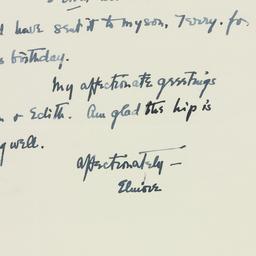 have sent it to my son, Terry. for
birthday.
My affectionate greetings
& Edith. Am glad the hip is
well.
Affectionately —
Elmore